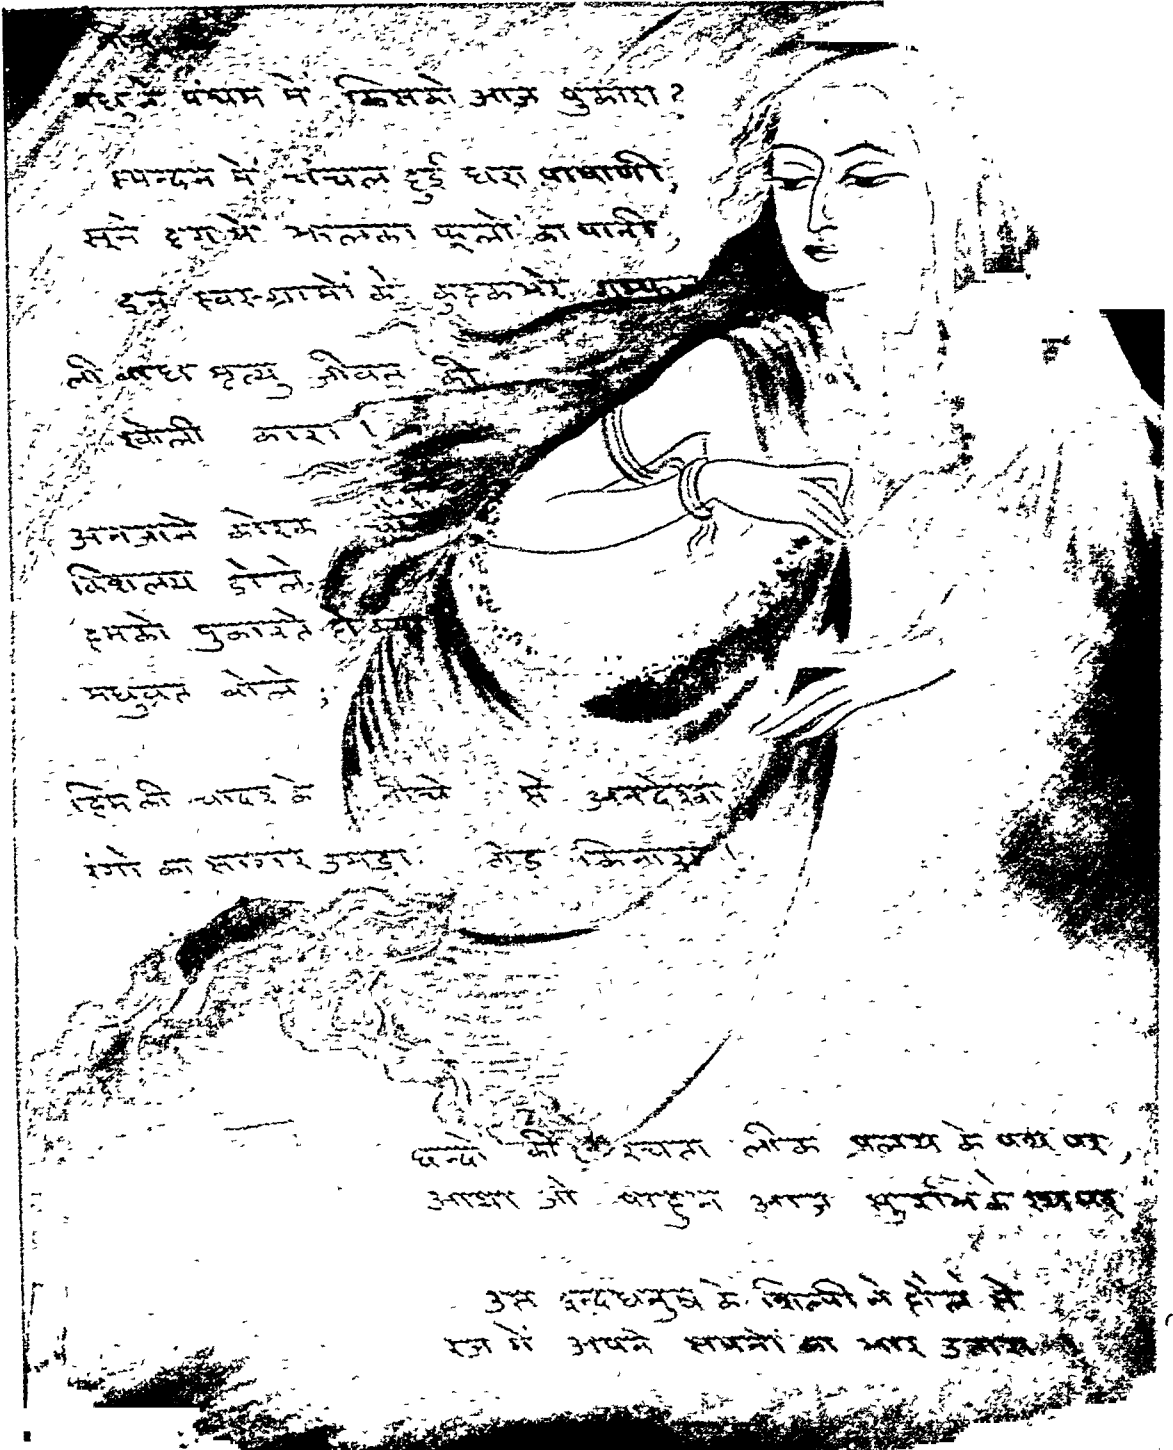 पंचम में किसको आज पुकारा ?
स्पन्दन में चंचल हुई धरा पाषाणी,
सूने दृग में झलका फूलों का पानी,
इन स्वर-ग्रामों के कुहकभरे गुम्फन
ली बाँध मृत्यु जीवन की
खोली कारा !
अनजाने कोरक
किशलय डोले
हमको पुकारते
मधुव्रत बोले ;
हिम की चादर के नीचे से अनदेखा
रंगों का सागर उमड़ा तोड़ किनारा !
छन्दों की रचना लोक प्रलय के पथ पर,
आया जो पाहुन आज सुरभि के रथ पर
उस इन्द्रधनुष के शिल्पी ने हौले से
रज में अपने सपनों का भार उतारा